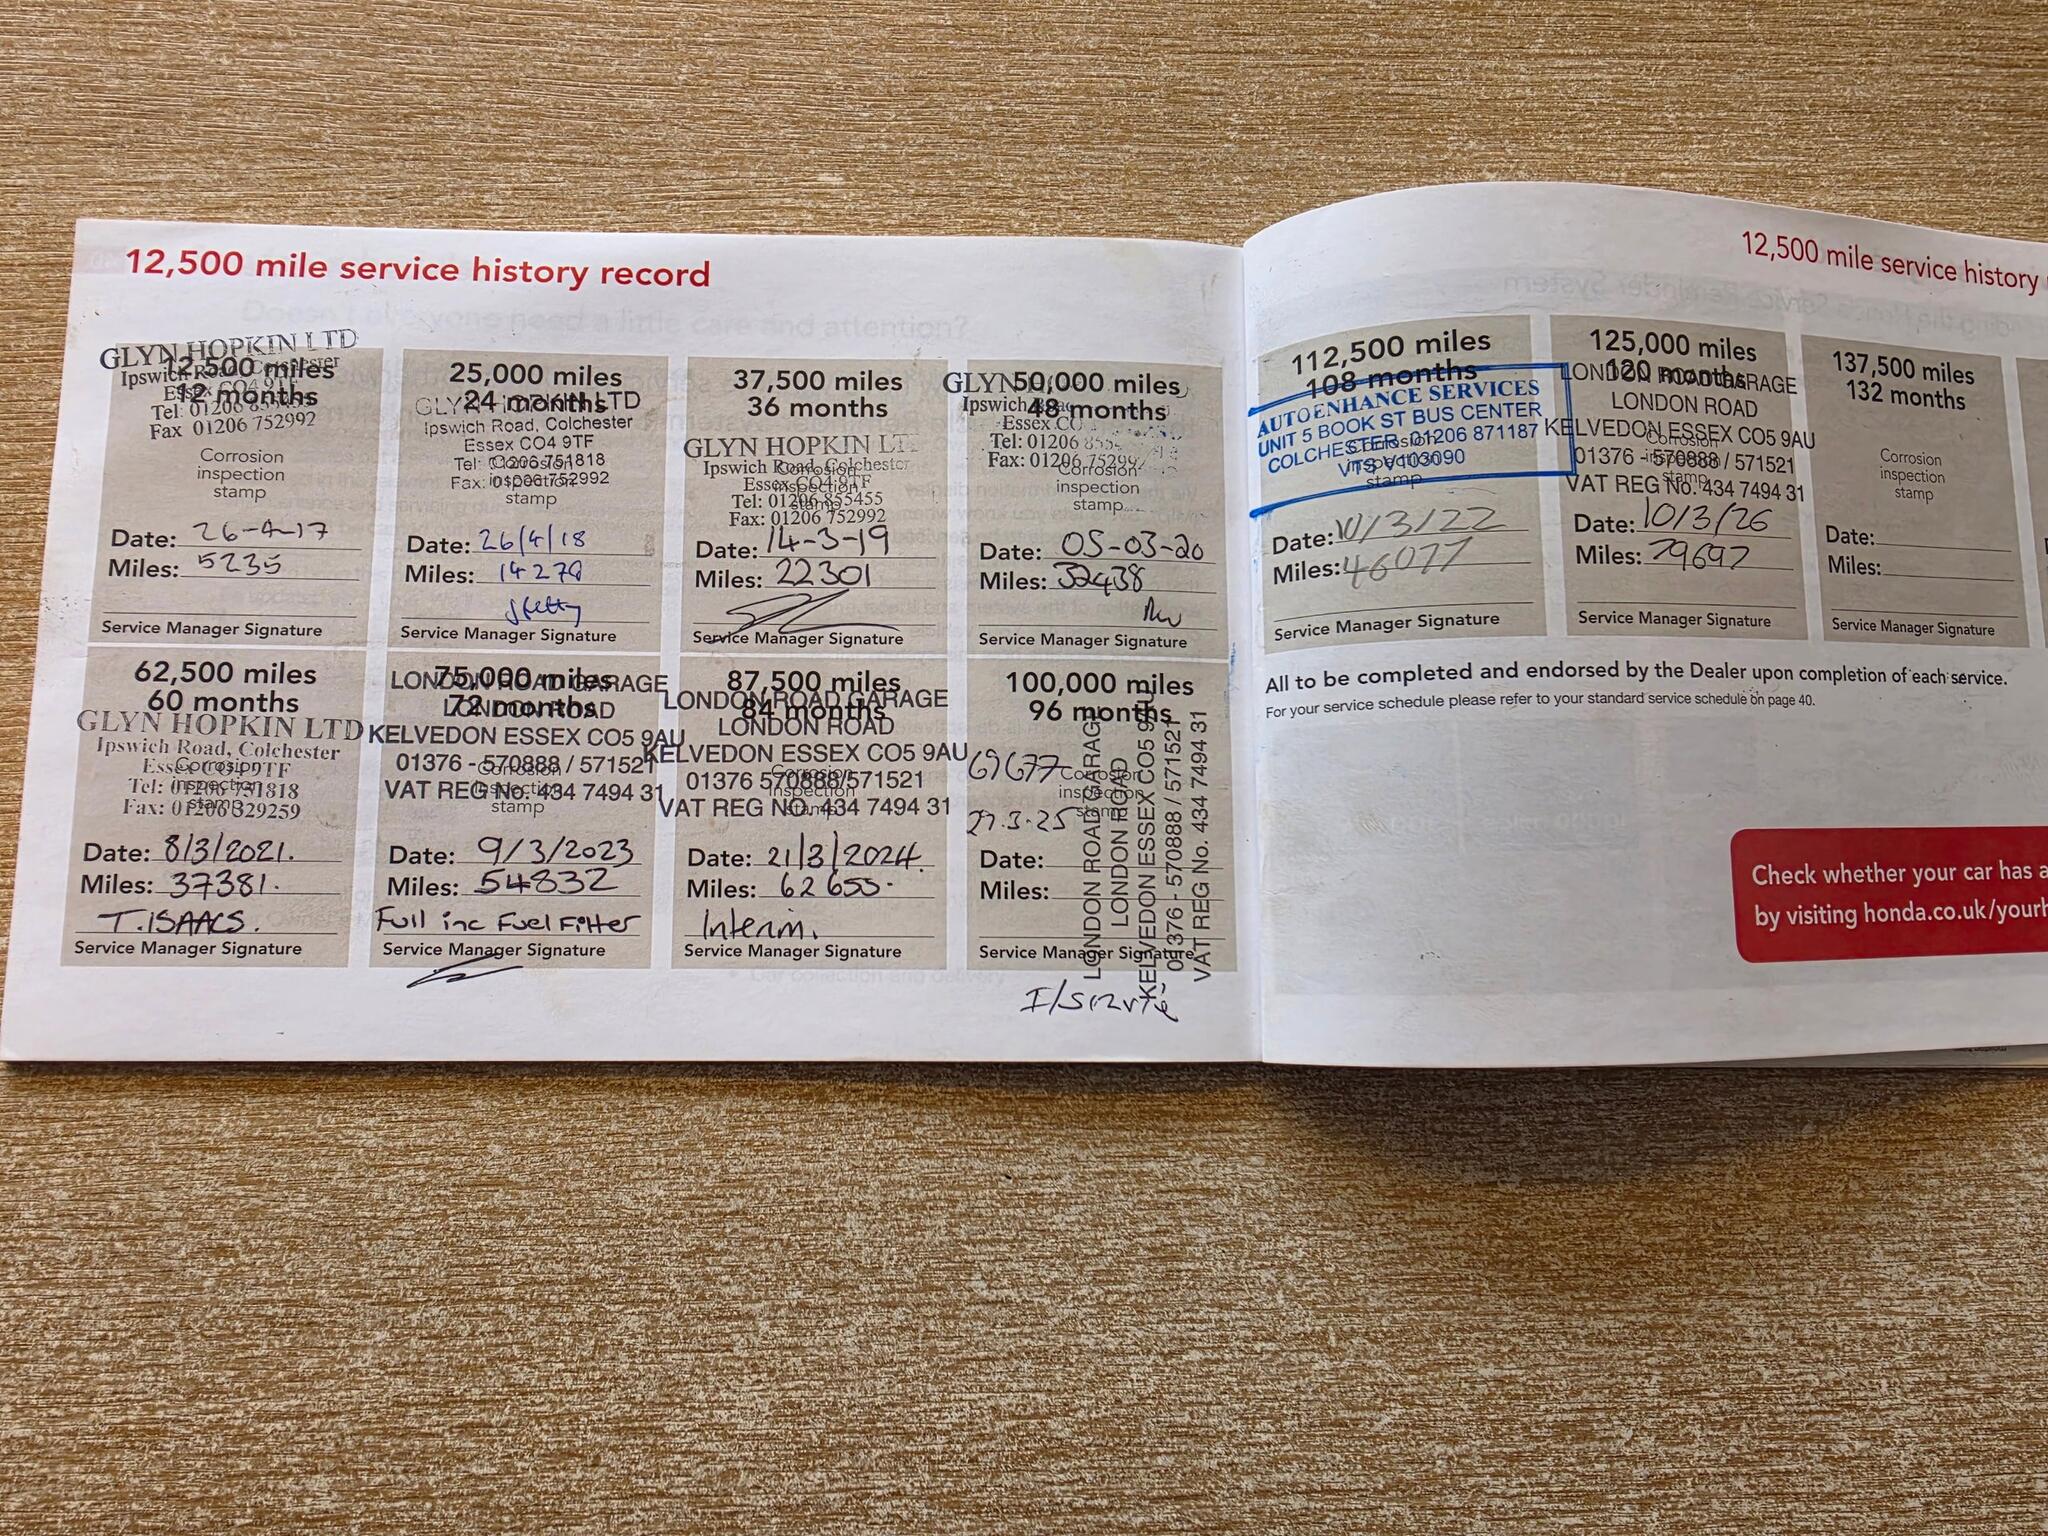 12,500 mile service history record
GLYN HOPKIN LTD
12,500 miles
Ipswich Road, Colchester
12 months
Essex CO4 9TF
Tel: 01206 855455
Fax 01206 752992
Corrosion
inspection
stamp
Date: 26-4-17
Miles: 5235
Service Manager Signature
25,000 miles
24 months
GLYN HOPKIN LTD
Ipswich Road, Colchester
Essex CO4 9TF
Tel: 01206 751818
Corrosion
Fax: 01206 752992
inspection
stamp
Date: 26/4/18
Miles: 14278
Service Manager Signature
37,500 miles
36 months
GLYN HOPKIN LTD
Ipswich Road, Colchester
Corrosion
Essex CO4 9TF
inspection
Tel: 01206 855455
stamp
Fax: 01206 752992
Date: 14-3-19
Miles: 22301
Service Manager Signature
50,000 miles
GLYN
48 months
Ipswich Road
Essex CO
Tel: 01206 855
Fax: 01206 75299
Corrosion
inspection
stamp
Date: 05-03-20
Miles: 32438
Service Manager Signature
62,500 miles
60 months
GLYN HOPKIN LTD
Ipswich Road, Colchester
Essex CO4 9TF
Corrosion
Tel: 01206 751818
inspection
Fax: 01206 329259
stamp
Date: 8/3/2021.
Miles: 37381.
T. ISAACS.
Service Manager Signature
75,000 miles
LONDON ROAD GARAGE
72 months
LONDON ROAD
KELVEDON ESSEX CO5 9AU
01376 - 570888 / 571521
Corrosion
inspection
VAT REG No. 434 7494 31
stamp
Date: 9/3/2023
Miles: 54832
Full inc Fuel Filter
Service Manager Signature
87,500 miles
LONDON ROAD GARAGE
84 months
LONDON ROAD
KELVEDON ESSEX CO5 9AU
01376 570888/571521
Corrosion
inspection
VAT REG NO. 434 7494 31
stamp
Date: 21/3/2024.
Miles: 62655.
Interim.
Service Manager Signature
100,000 miles
96 months
69677
Corrosion
inspection
stamp
27.3.25
Date:
Miles:
Service Manager Signature
LONDON ROAD GARAGE
LONDON ROAD
KELVEDON ESSEX CO5 9AU
01376 - 570888 / 571521
VAT REG No. 434 7494 31
I/Service
12,500 mile service history
112,500 miles
108 months
AUTOENHANCE SERVICES
UNIT 5 BOOK ST BUS CENTER
COLCHESTER 01206 871187
VTS V103090
Corrosion
inspection
stamp
Date: 10/3/22
Miles: 46077
Service Manager Signature
125,000 miles
120 months
LONDON ROAD GARAGE
LONDON ROAD
KELVEDON ESSEX CO5 9AU
Corrosion
01376 - 570888 / 571521
inspection
stamp
VAT REG No. 434 7494 31
Date: 10/3/26
Miles: 79697
Service Manager Signature
137,500 miles
132 months
Corrosion
inspection
stamp
Date:
Miles:
Service Manager Signature
All to be completed and endorsed by the Dealer upon completion of each service.
For your service schedule please refer to your standard service schedule on page 40.
Check whether your car has a
by visiting honda.co.uk/yourh